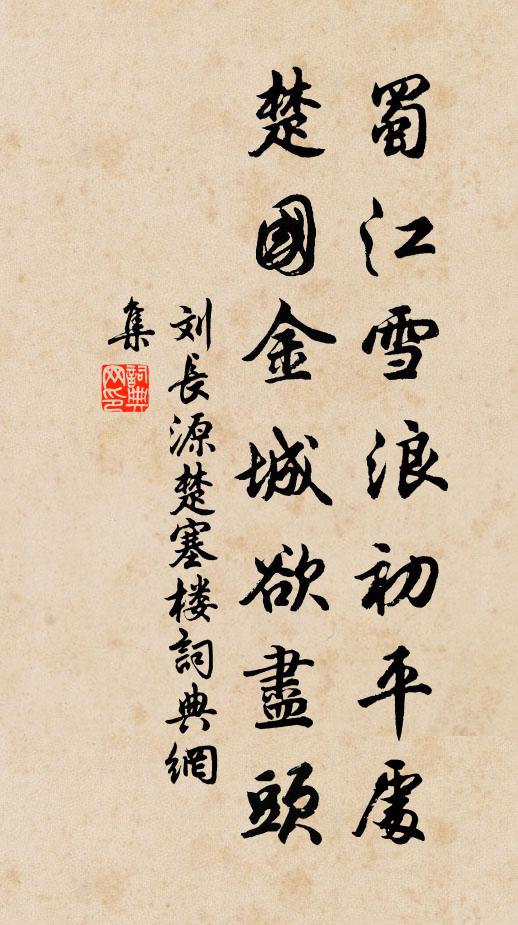 蜀江雪浪初平處
楚國金城欲盡頭
刘長源楚塞楼詞典網
集
詞典网印